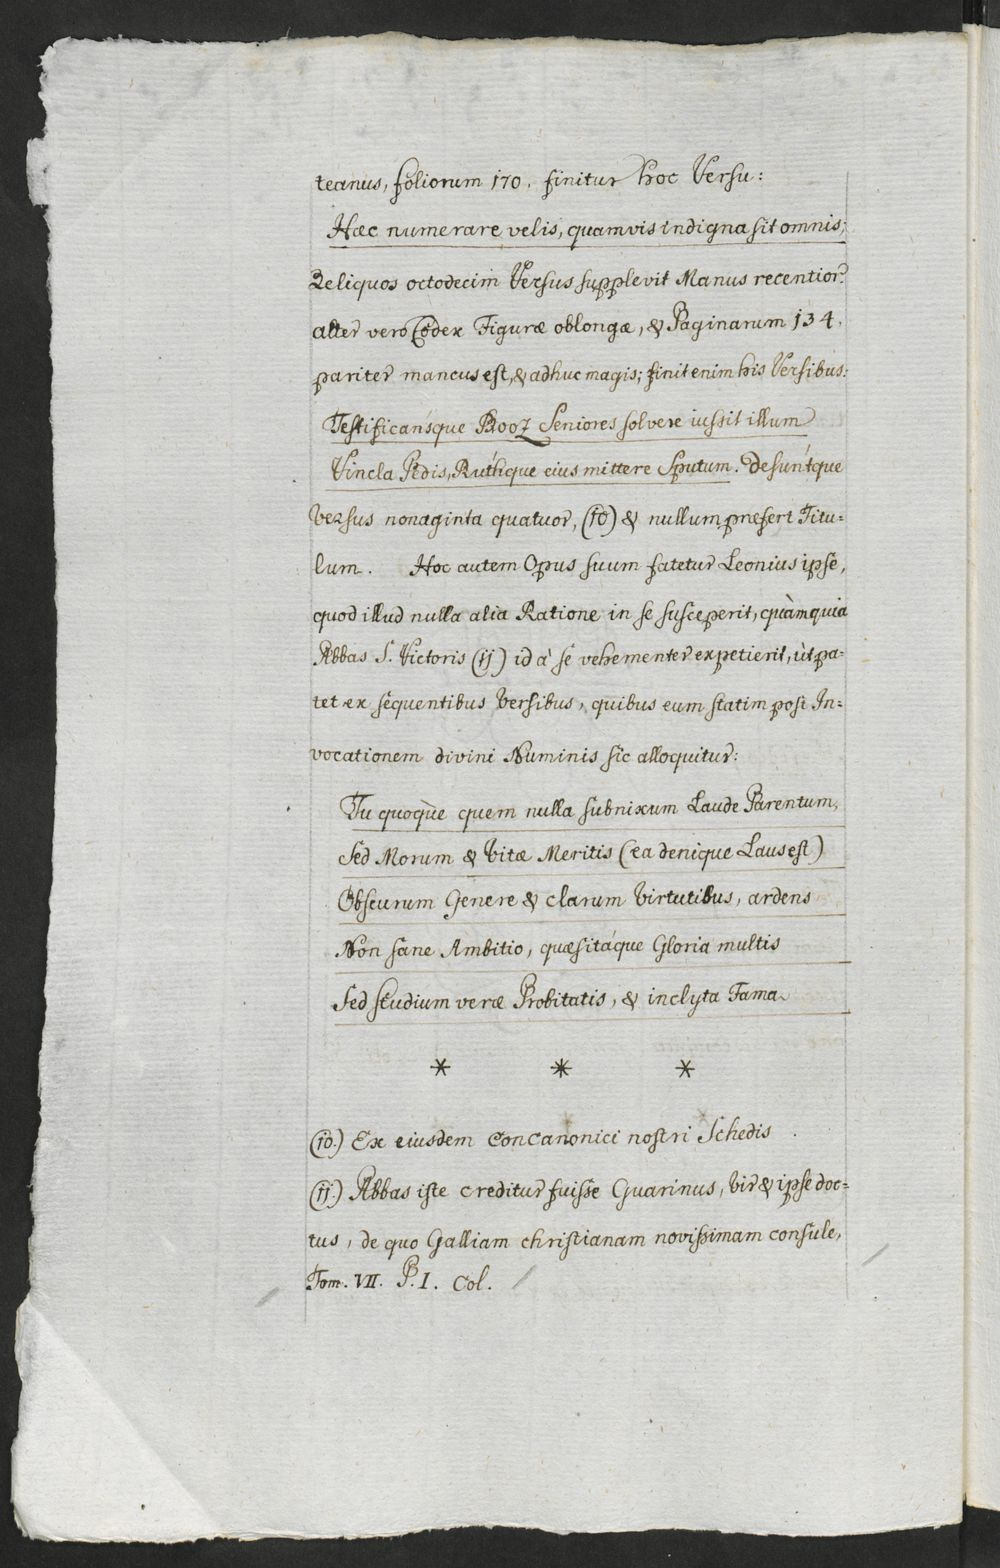 teanus, foliorum 170, finitur hoc Versu:
Hæc numerare velis, quamvis indigna sit omnis;
Reliquos octodecim Versus supplevit Manus recentior.
alter vero Codex Figuræ oblongæ, & Paginarum 134.
pariter mancus est, & adhuc magis; finit enim his Versibus:
Testificansque Booz Seniores solvere iussit illum
Vincla Pedis, Ruthque eius mittere Sputum. Desuntque
versus nonaginta quatuor, (10) & nullum præfert Titu=
lum. Hoc autem Opus suum fatetur Leonius ipse,
quod illud nulla alia Ratione in se susceperit, quàm quia
Abbas S. Victoris (ij) id à se vehementer expetierit, ùt pa=
tet ex sequentibus Versibus, quibus eum statim post In=
vocationem divini Numinis sic alloquitur:
Tu quoquè quem nulla subnixum Laude Parentum,
Sed Morum & Vitæ Meritis (ea denique Laus est)
Obscurum Genere & clarum Virtutibus, ardens
Non sane Ambitio, quæsitáque Gloria multis
Sed studium veræ Probitatis, & inclyta Fama.
* * *
(10.) Ex eiusdem Concanonici nostri Schedis
(ij) Abbas iste creditur fuisse Guarinus, Vir & ipse doc=
tus, de quo Galliam christianam novissimam consule,
Tom. VII. P. I. Col.